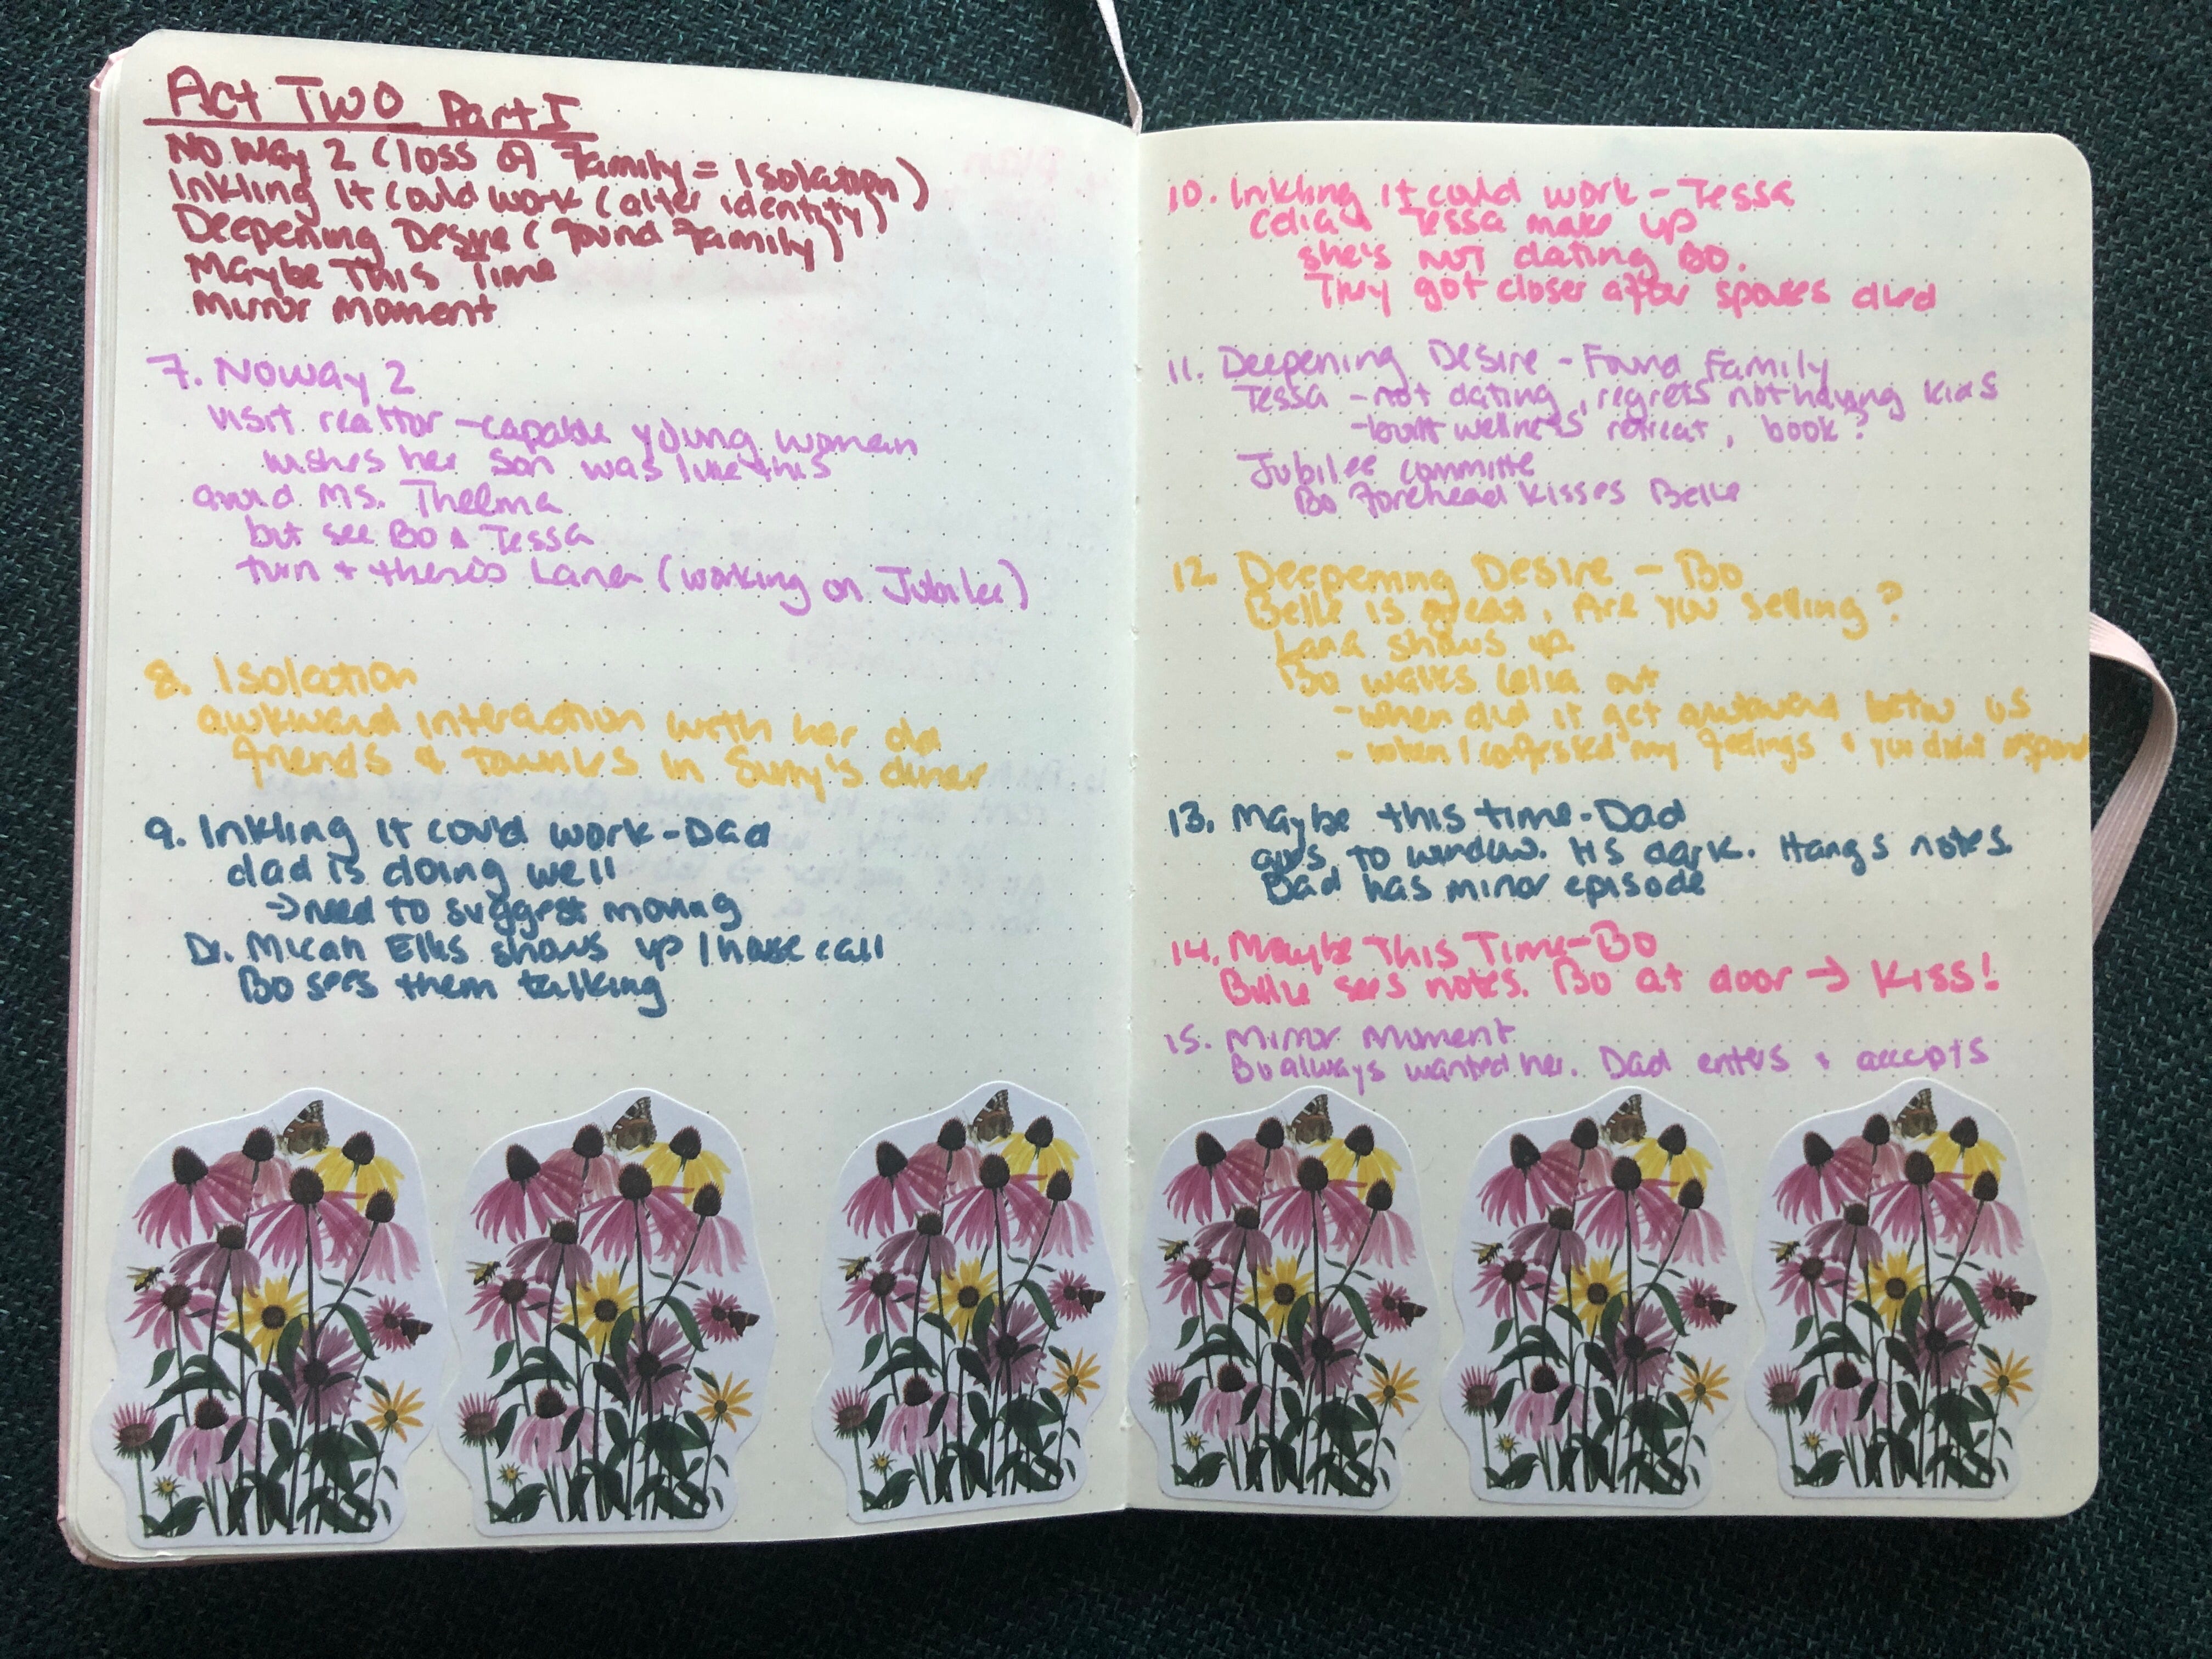 Act Two Part I
No Way 2 (loss of Family = Isolation)
Inkling It Could work (alter identity)
Deepening Desire (Found Family)
Maybe This Time
Mirror Moment
7. No Way 2
visit realtor - capable young woman
wishes her son was like this
avoid Ms. Thelma
but see Bo & Tessa
turn + there's Lana (working on Jubilee)
8. Isolation
awkward interaction with her old
friends & townies in Sunny's diner
9. Inkling It could work - Dad
dad is doing well
→ need to suggest moving
Dr. Micah Ellis shows up / house call
Bo sees them talking
10. Inkling it could work - Tessa
Tessa make up
she's NOT dating Bo.
They got closer after spouses died
11. Deepening Desire - Found Family
Tessa - not dating, regrets not having kids
- built wellness retreat, book?
Jubilee committe
Bo Forehead kisses Belle
12. Deepening Desire - Bo
Belle is great. Are you selling?
Lana shows up.
Bo walks out
- when did it get awkward betw us
- when I confessed my feelings & you didnt respond
13. Maybe this time - Dad
goes to window. Its dark. Hangs notes.
Dad has minor episode
14. Maybe This Time - Bo
Belle sees notes. Bo at door → Kiss!
15. Mirror Moment
Bo always wanted her. Dad enters & accepts